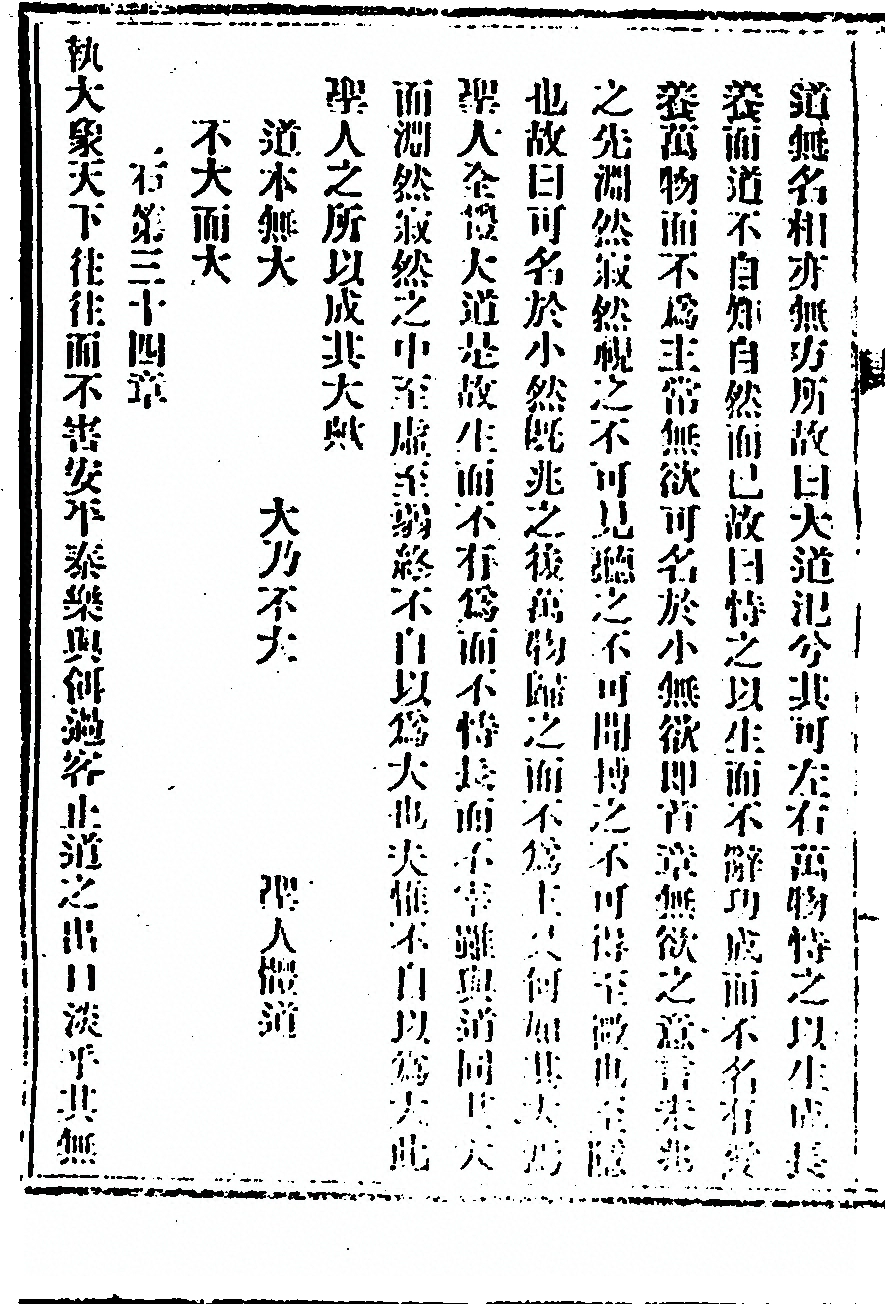 道無名相亦無方所故曰大道汜兮其可左右萬物恃之以生成長
養而道不自知自然而已故曰恃之以生而不辭功成而不名有愛
養萬物而不為主常無欲可名於小無欲即首章無欲之意言未兆
之先淵然寂然視之不可見聽之不可聞搏之不可得至微也至隱
也故曰可名於小然旣兆之後萬物歸之而不為主又何如其大乎
聖人全體大道是故生而不有為而不恃長而不宰雖與道同其大
而淵然寂然之中至虛至弱終不自以為大也夫惟不自以為大此
聖人之所以成其大歟
道本無大　大乃不大　聖人體道
不大而大
右第三十四章
執大象天下往往而不害安平泰樂與餌過客止道之出口淡乎其無